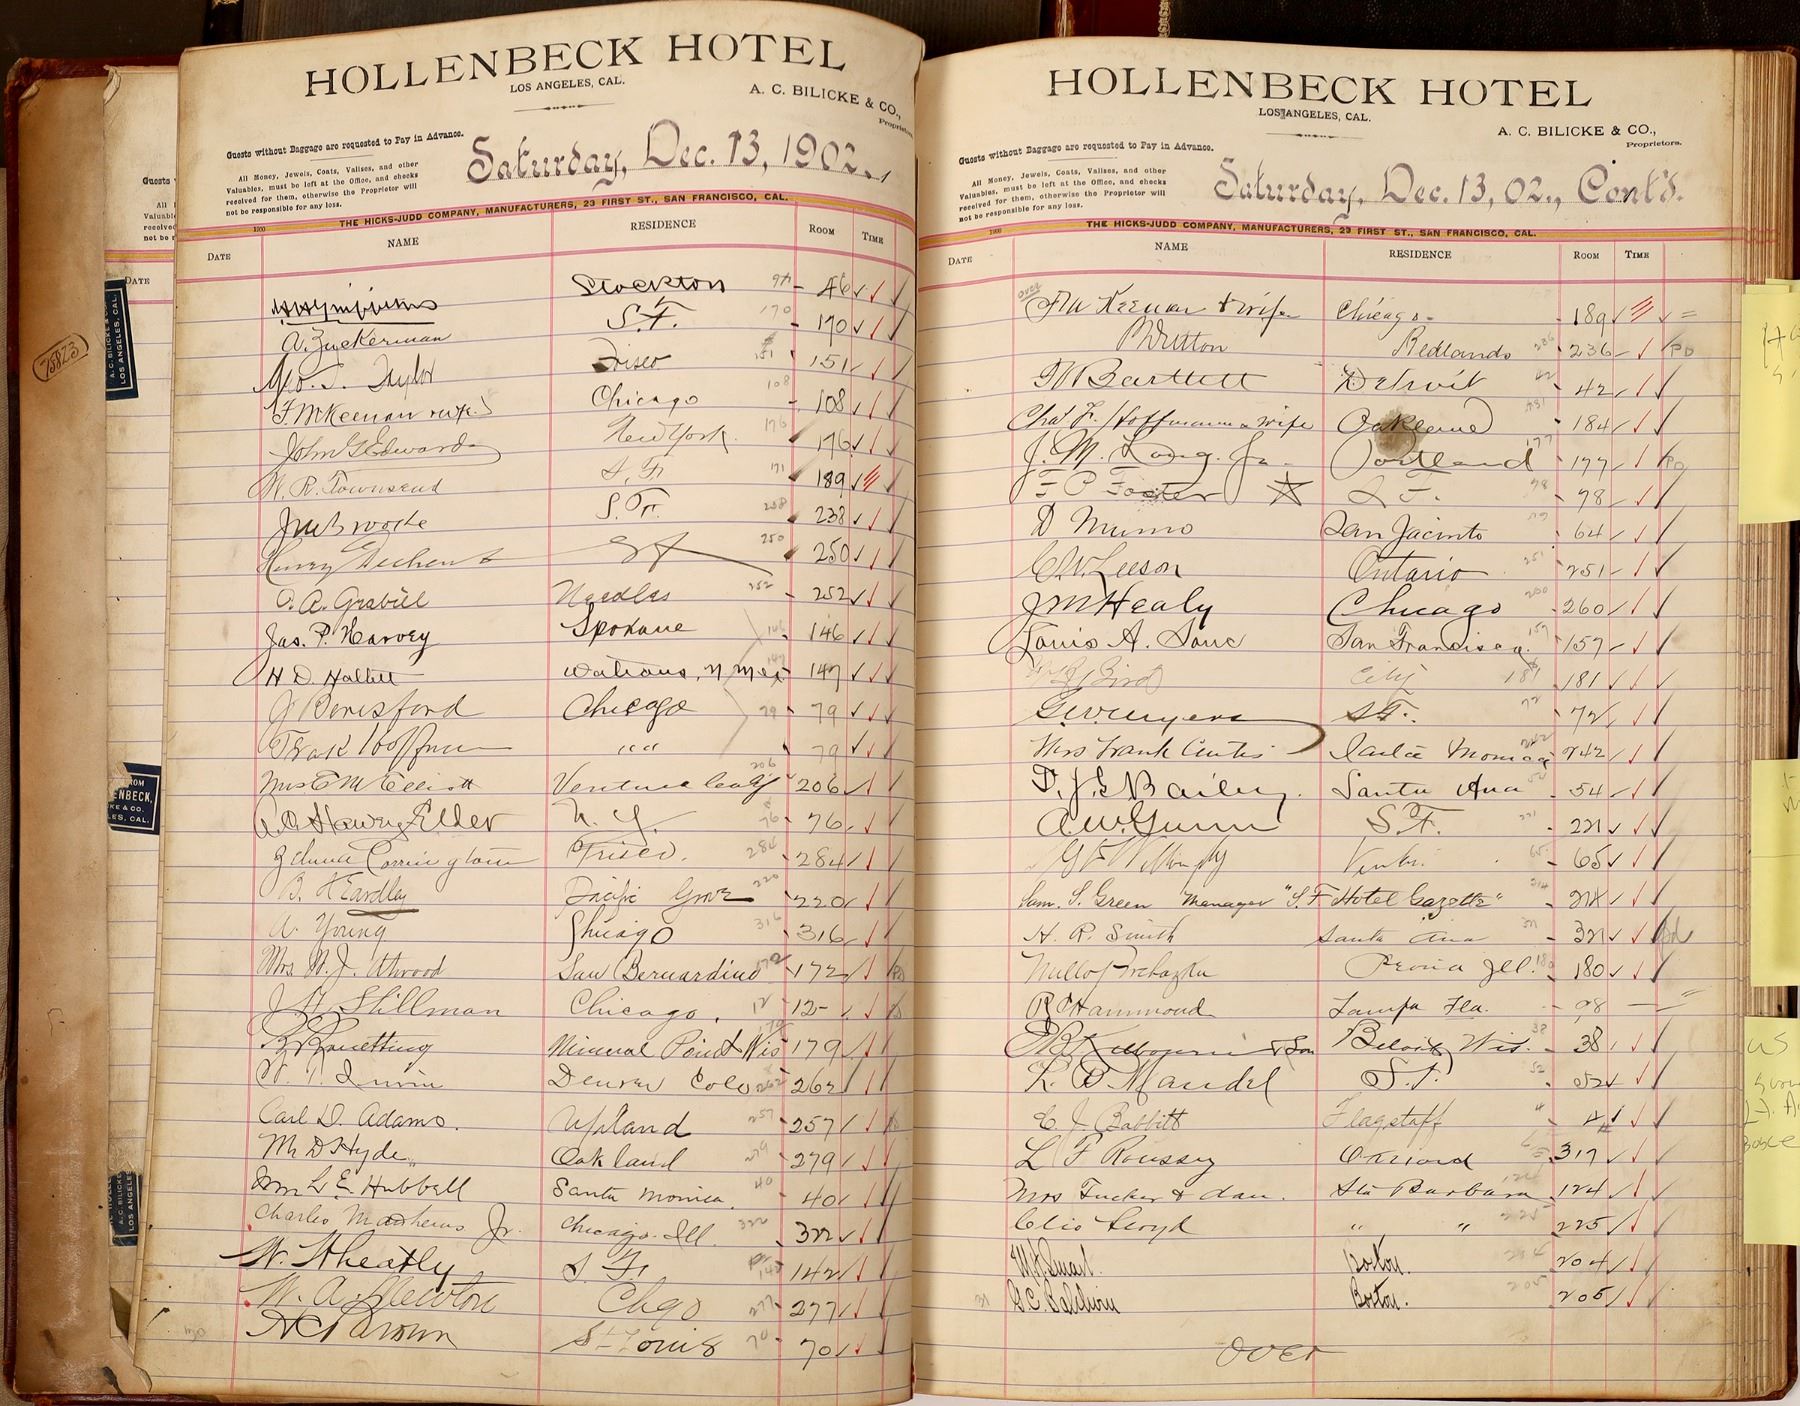 HOLLENBECK HOTEL
LOS ANGELES, CAL.
A. C. BILICKE & CO.,
Proprietors.
Guests without Baggage are requested to Pay in Advance.
All Money, Jewels, Coats, Valises, and other
Valuables, must be left at the Office, and checks
received for them, otherwise the Proprietor will
not be responsible for any loss.
Saturday, Dec. 13, 1902.,
THE HICKS-JUDD COMPANY, MANUFACTURERS, 23 FIRST ST., SAN FRANCISCO, CAL.
1900
DATE NAME RESIDENCE ROOM TIME
Stockton 46
A. Zuckerman S.F. 170 170
Geo. T. Taylor Frisco 151 151
F. McKeenan Chicago 108 108
John G Edwards New York. 176 176
W. R. Townsend S. F. 171 189
S. F. 238 238
Henry S F 250 250
Needles 252 252
Jas. P. Harvey Spokane 146 146
H D Hallett Watrous, N Mex 147 147
J Beresford Chicago 79 79
" " 79
Mrs E M Elliott Ventura 206 206
Elder N. Y. 76 76
Frisco. 284 284
B. H Eardley Pacific Grove 220 220
A. Young Chicago 316 316
Mrs W. J. Atwood San Bernardino 172 172
J H Stillman Chicago, 12 12
Mineral Point Wis 179 179
W. T. Irwin Denver Colo 262 262
Carl D. Adams. Upland 257 257
M D Hyde Oakland 279 279
L E Hubbell Santa Monica. 40 40
Charles Matthews Jr. Chicago. Ill. 322 322
W. Wheatly S. F. 142 142
W. A. Newton Chgo 277 277
A C Brown St Louis 70 70
75823
HOLLENBECK HOTEL
LOS ANGELES, CAL.
A. C. BILICKE & CO.,
Proprietors.
Guests without Baggage are requested to Pay in Advance.
All Money, Jewels, Coats, Valises, and other
Valuables, must be left at the Office, and checks
received for them, otherwise the Proprietor will
not be responsible for any loss.
Saturday, Dec. 13, 02., Cont'd.
THE HICKS-JUDD COMPANY, MANUFACTURERS, 23 FIRST ST., SAN FRANCISCO, CAL.
1900
DATE NAME RESIDENCE ROOM TIME
over Keenan & wife Chicago. 189
Redlands 236 236
Bartlett Detroit 42 42
Chas F. Hoffmann & wife Oakland 184
J. M. Long. Jr. Portland 177 177
F P Foster S F. 98 98
D Munro San Jacinto 64
C. W. Leeson Ontario 251 251
J M Healy Chicago 260 260
Louis A. San Francisco. 157 157
Bird City 181 181
Geo W Myers S F. 72 72
Mrs Frank Curtis Santa Monica 242 242
D. J. G Bailey. Santa Ana 54 54
A. W. Gunn S. F. 221 221
65 65
Sam. S. Green Manager "S. F Hotel Gazette" 214 214
H. R. Smith Santa Ana 321 321
Peoria Ill. 180 180
R C Hammond Tampa Fla. 98
& Son Beloit Wis. 38 38
L. B. Mandel S. F. 52 52
E. J. Babbitt Flagstaff 4 4
L F Roussey Oxnard 317
Mrs Tucker & dau. Sta Barbara 124 124
Clio Lloyd " " 225 225
Smart. Boston. 204 204
G. C. Baldwin Boston. 205 205
over